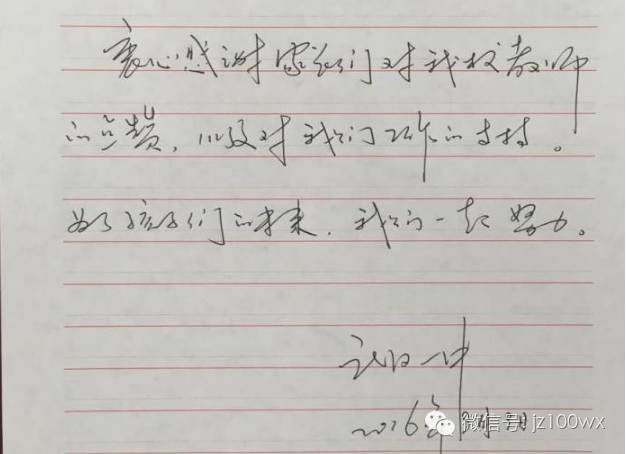 衷心感谢家长们对我校教师
的点赞，以及对我们工作的支持。
为了孩子们的未来，我们一起努力。
一中
2016年
微信号: jz100wx